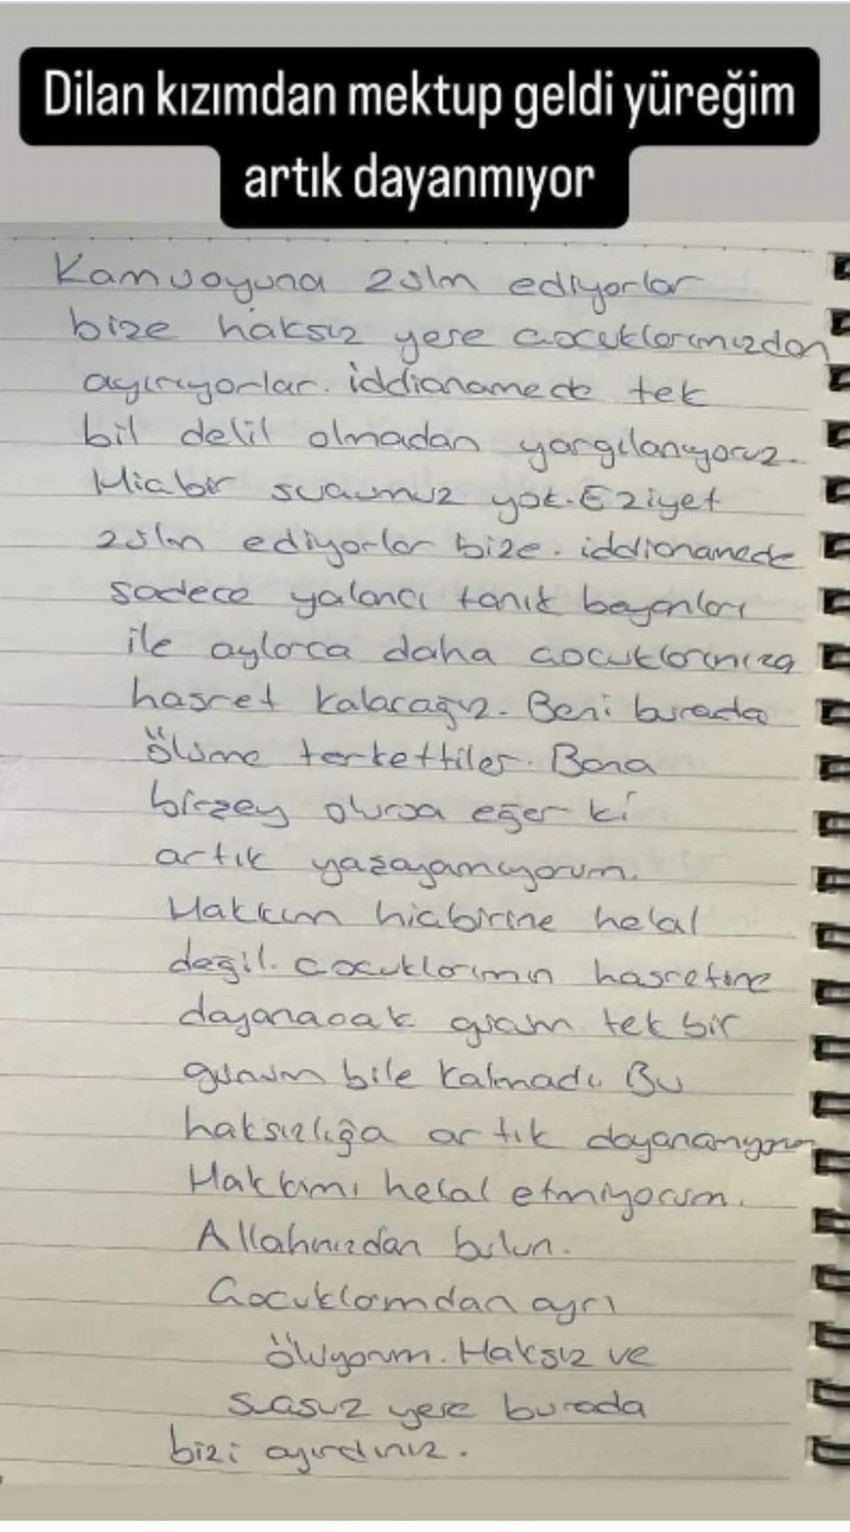 Dilan kızımdan mektup geldi yüreğim
artık dayanmıyor
Kamuoyuna zulm ediyorlar
bize haksız yere çocuklarımızdan
ayırıyorlar. iddianamede tek
bil delil olmadan yargılanıyoruz.
Hiçbir suçumuz yok. Eziyet
zulm ediyorlar bize. iddianamede
sadece yalancı tanık beyanları
ile aylarca daha çocuklarımıza
hasret kalacağız. Beni burada
ölüme terkettiler. Bana
birşey olursa eğer ki
artık yaşayamıyorum.
Hakkım hiçbirine helal
değil. çocuklarımın hasretine
dayanacak gücüm tek bir
günüm bile kalmadı. Bu
haksızlığa artık dayanamıyorum
Hakkımı helal etmiyorum.
Allahınızdan bulun.
Çocuklarımdan ayrı
ölüyorum. Haksız ve
suçsuz yere burada
bizi ayırdınız.